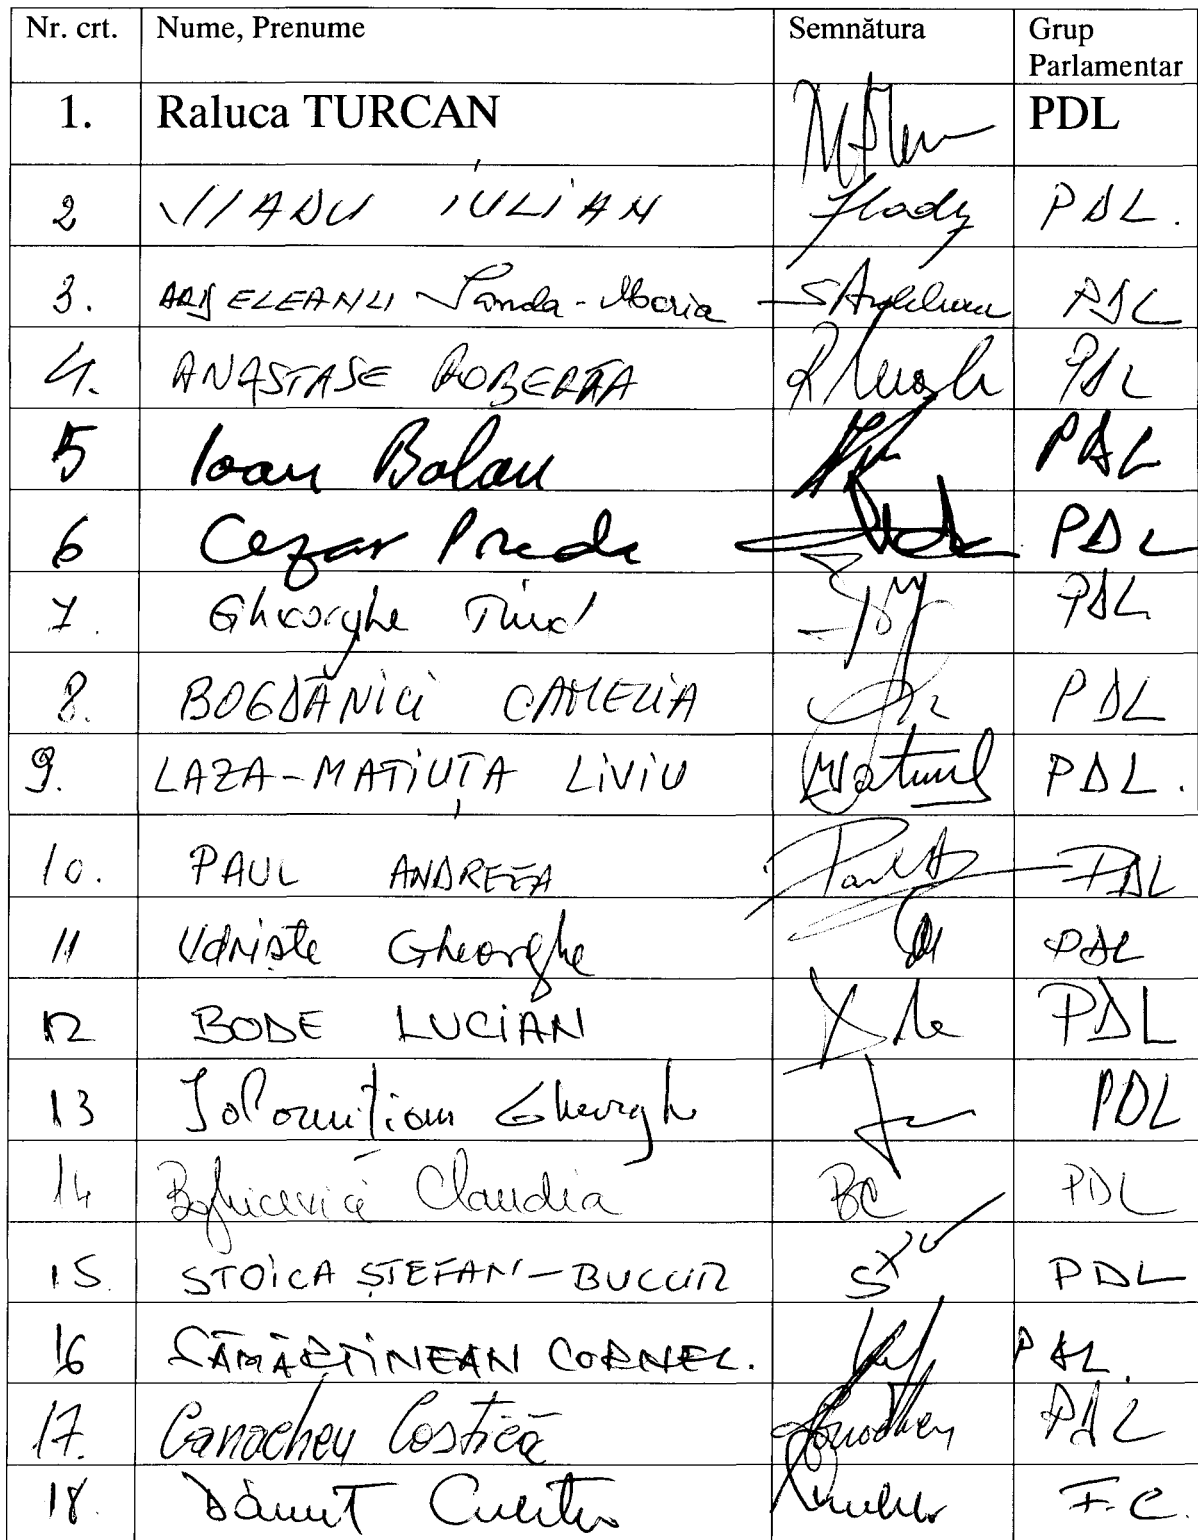 Nr. crt. Nume, Prenume Semnătura Grup Parlamentar
1. Raluca TURCAN PDL
2 VLADU IULIAN PDL.
3. ARDELEANU Sanda-Maria PDL
4. ANASTASE ROBERTA PDL
5 Ioan Balan PDL
6 Cezar Preda PDL
7. Gheorghe PDL
8. BOGDĂNICI CAMELIA PDL
9. LAZA-MATIUȚA LIVIU PDL.
10. PAUL ANDREEA PDL
11 Udriște Gheorghe PDL
12 BODE LUCIAN PDL
13 Ialomițianu Gheorghe PDL
14 Boghicevici Claudia BC PDL
15. STOICA ȘTEFAN-BUCUR PDL
16 SĂMĂRTINEAN CORNEL. PDL
17. Canacheu Costică PDL
18. Dănuț F.C.